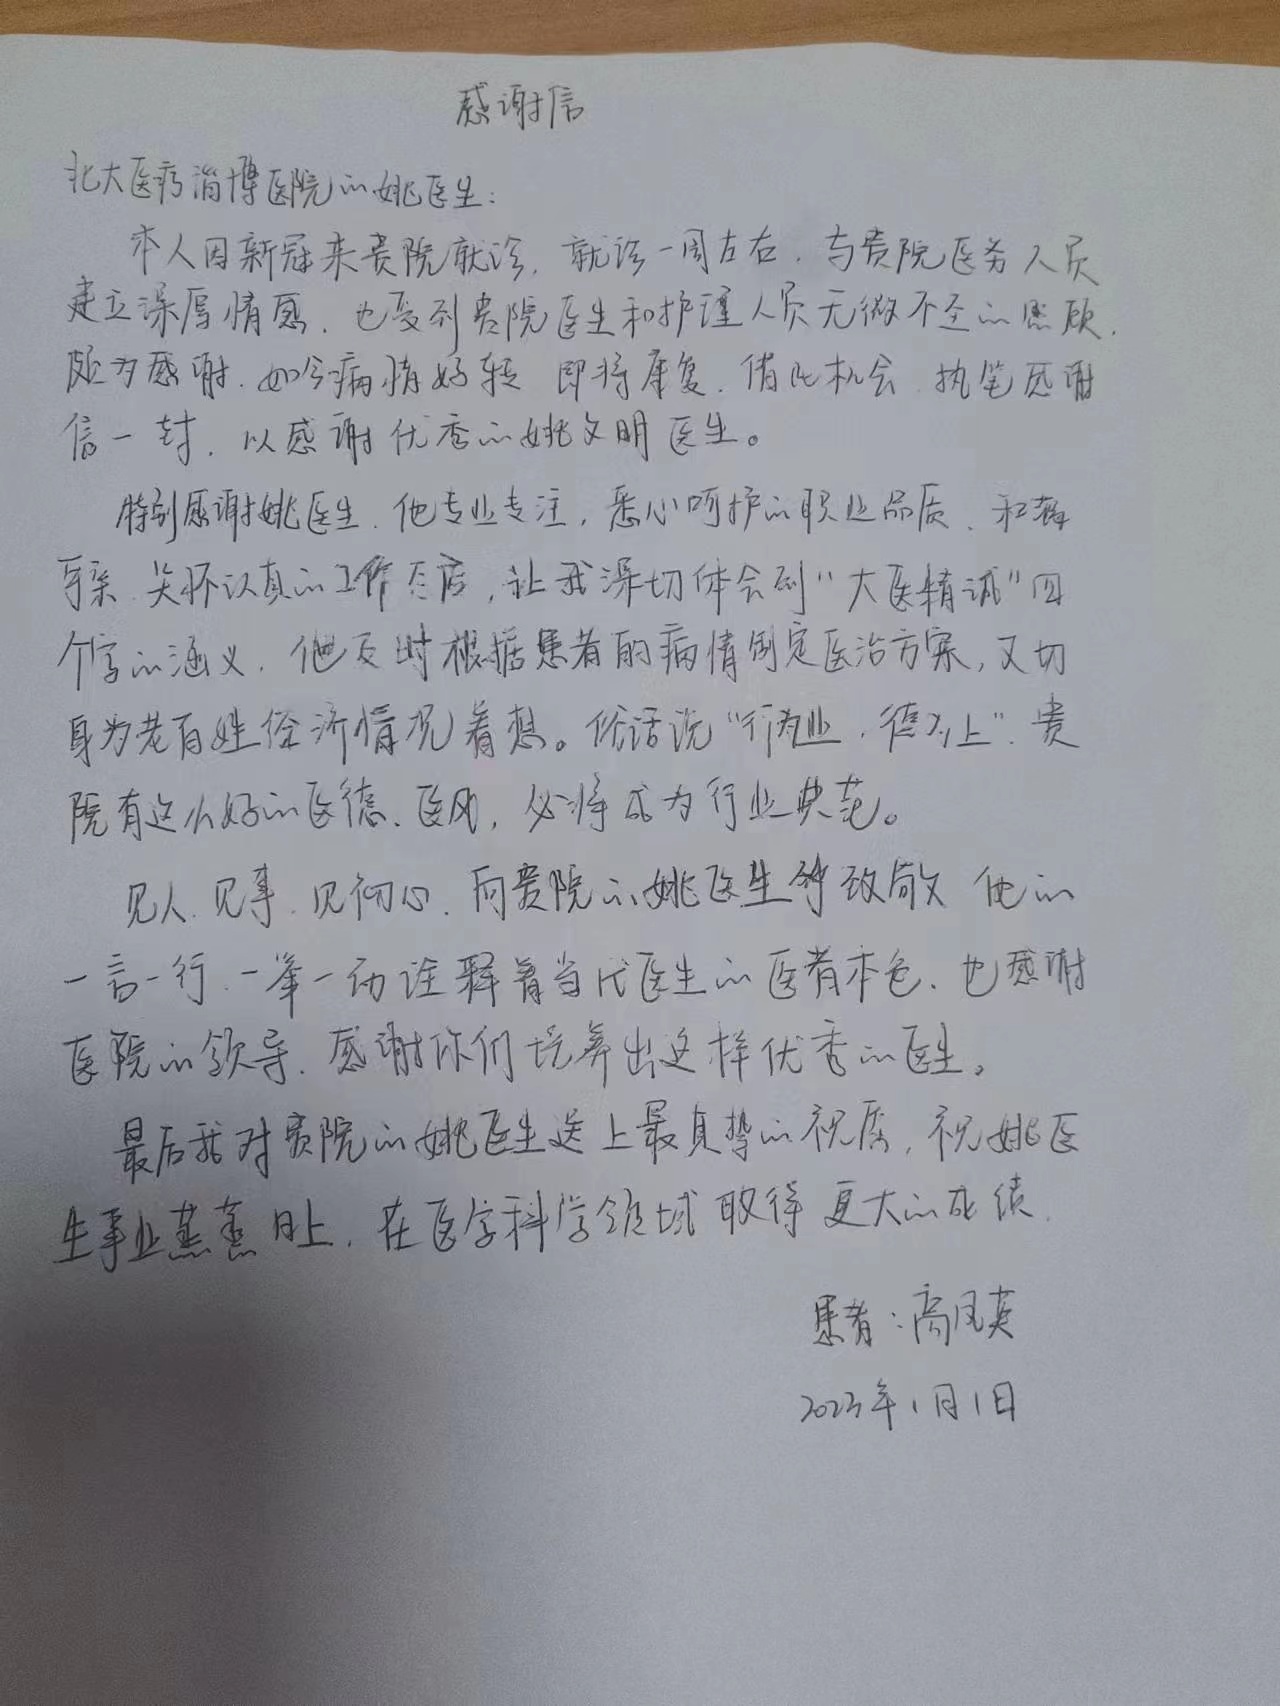 感谢信
北大医疗淄博医院的姚医生:
本人因新冠来贵院就诊,就诊一周左右,与贵院医务人员
建立深厚情意,也受到贵院医生和护理人员无微不至的照顾,
颇为感谢,如今病情好转 即将康复,借此机会,执笔感谢
信一封,以感谢优秀的姚文明医生。
特别感谢姚医生,他专业专注,悉心呵护的职业品质,和蔼
可亲、关怀认真的工作态度,让我深切体会到“大医精诚”四
个字的涵义,他及时根据患者的病情制定医治方案,又切
身为老百姓经济情况着想。俗话说“行为业,德为上”,贵
院有这么好的医德、医风,必将成为行业典范。
见人、见事、见初心,向贵院的姚医生等致敬 他的
一言一行、一举一动诠释着当代医生的医者本色,也感谢
医院的领导,感谢你们培养出这样优秀的医生。
最后我对贵院的姚医生送上最真挚的祝愿,祝姚医
生事业蒸蒸日上,在医学科学领域取得更大的成绩.
患者:高凤英
2023年1月1日